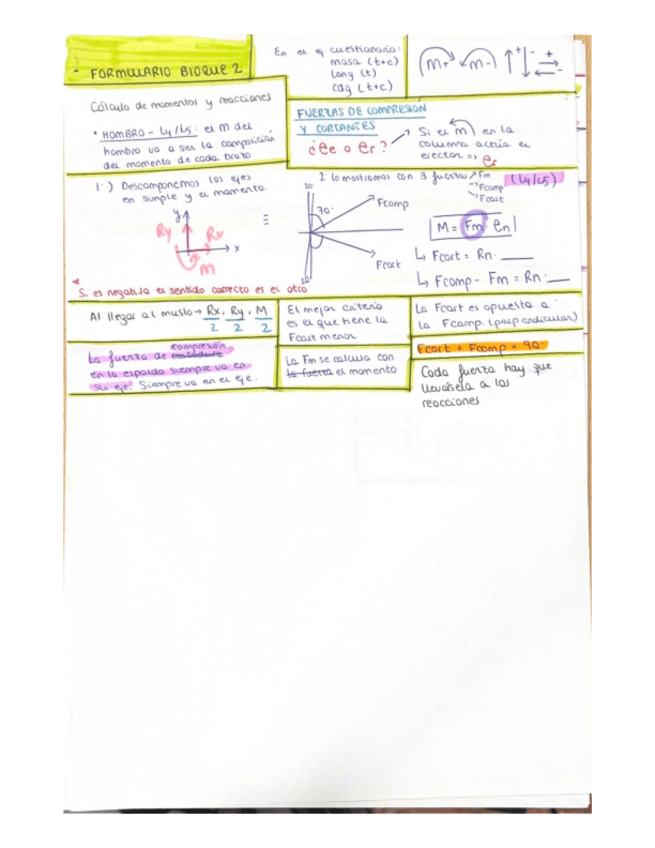 - FORMULARIO BLOQUE 2
En el ej cuestionario:
masa (t+c)
long (t)
cdg (t+c)
m+ m- + - + -
Cálculo de momentos y reacciones
• HOMBRO - L4/L5: el M del
hombro va a ser la composición
del momento de cada brazo
FUERZAS DE COMPRESIÓN
Y CORTANTES
¿ee o er?
Si el m en la
columna actúa el
erector => er
1º) Descomponemos los ejes
en simple y el momento.
y
Ry
Rx
x
M
≡
2 lo mostramos con 3 fuerzas
Fm
Fcomp
Fcort
(L4/L5)
20º
70º
Fcomp
Fcort
20º
M = Fm · en
↳ Fcort = Rn ·
↳ Fcomp - Fm = Rn ·
* Si es negativa el sentido correcto es el otro
Al llegar al muslo → Rx/2, Ry/2, M/2
El mejor criterio
es el que tiene la
Fcort menor
La Fcort es opuesta a
la Fcomp. (perpendicular)
compresión
La fuerza de
en la espalda siempre va en
su eje. Siempre va en el eje.
La Fm se calcula con
la fuerza el momento
Fcort + Fcomp = 90º
Cada fuerza hay que
llevársela a las
reacciones